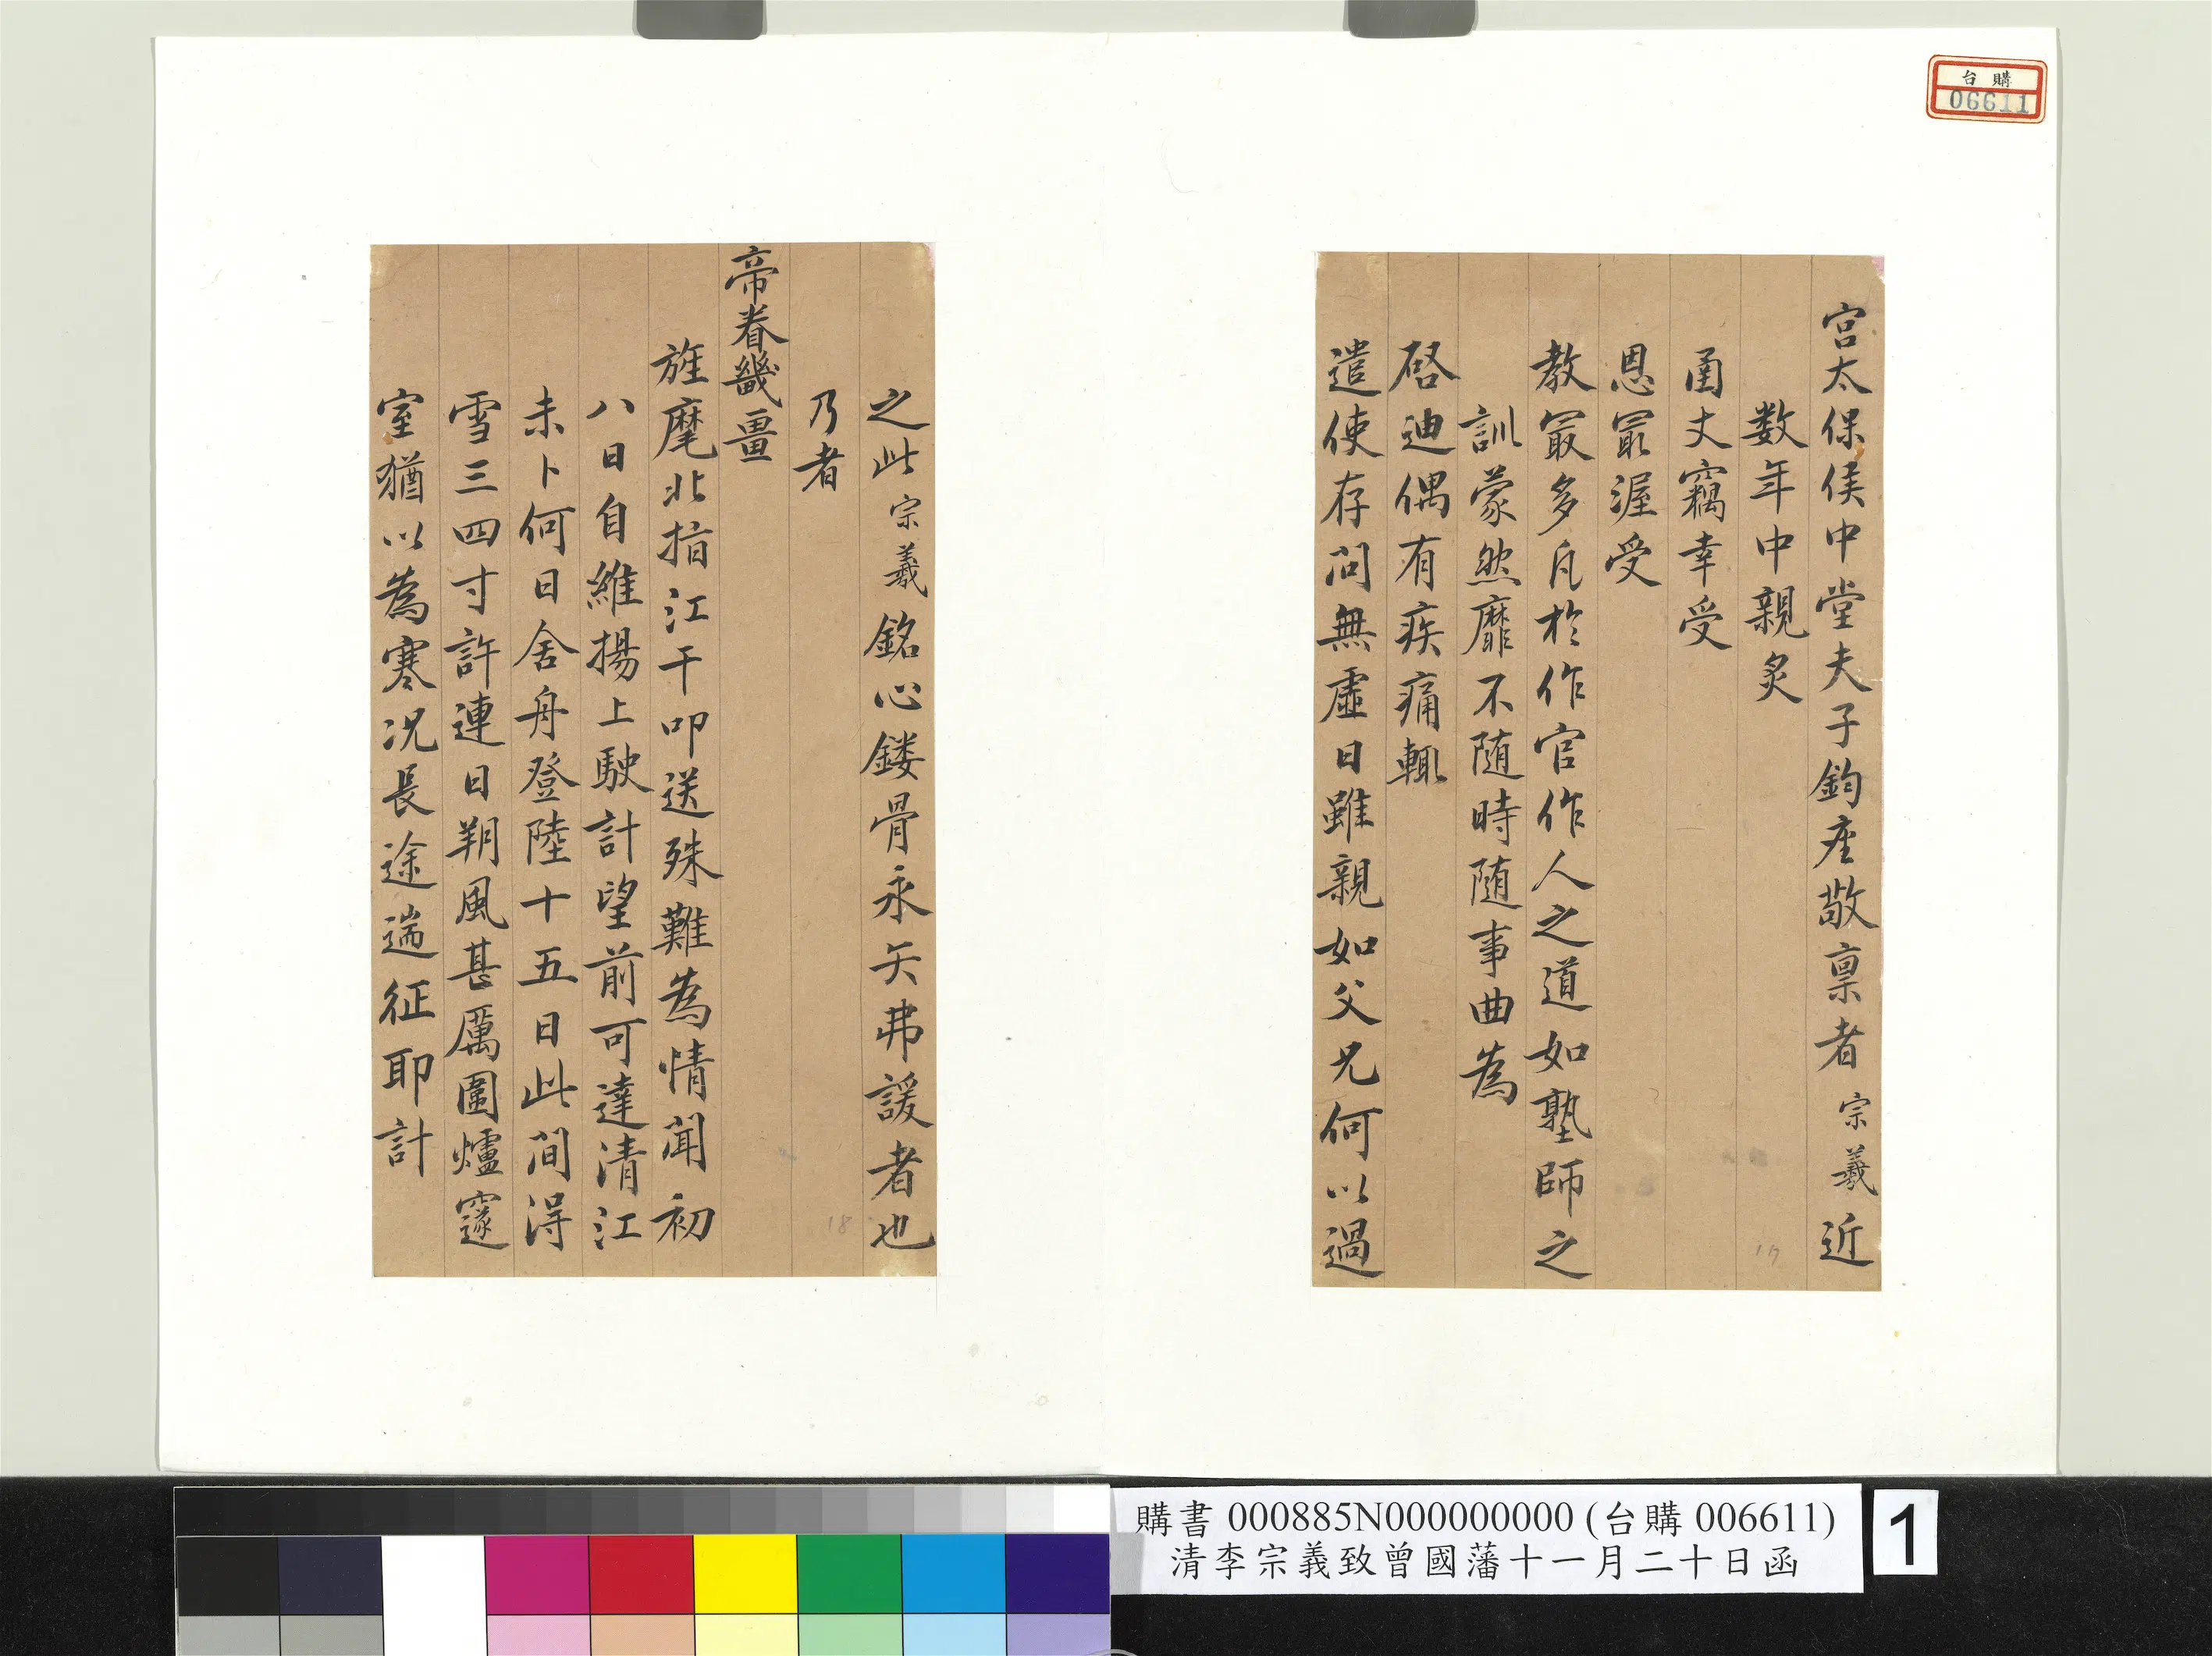 台購
06611
宮太保侯中堂夫子鈞座敬禀者宗羲近
数年中親炙
函丈竊幸受
恩冣渥受
教冣多凡於作官作人之道如塾師之
訓蒙然靡不随時随事曲為
啓迪偶有疾痛輒
遣使存问無虛日雖親如父兄何以過
之此宗羲銘心鏤骨永矢弗諼者也
乃者
帝眷畿畺
旌麾北指江干叩送殊難為情闻初
八日自維揚上駛計望前可達清江
未卜何日舍舟登陸十五日此间淂
雪三四寸許連日朔風甚厲圍爐邃
室猶以為寒况長途遄征耶計
17
18
購書 000885N000000000 (台購 006611)
清李宗義致曾國藩十一月二十日函
1